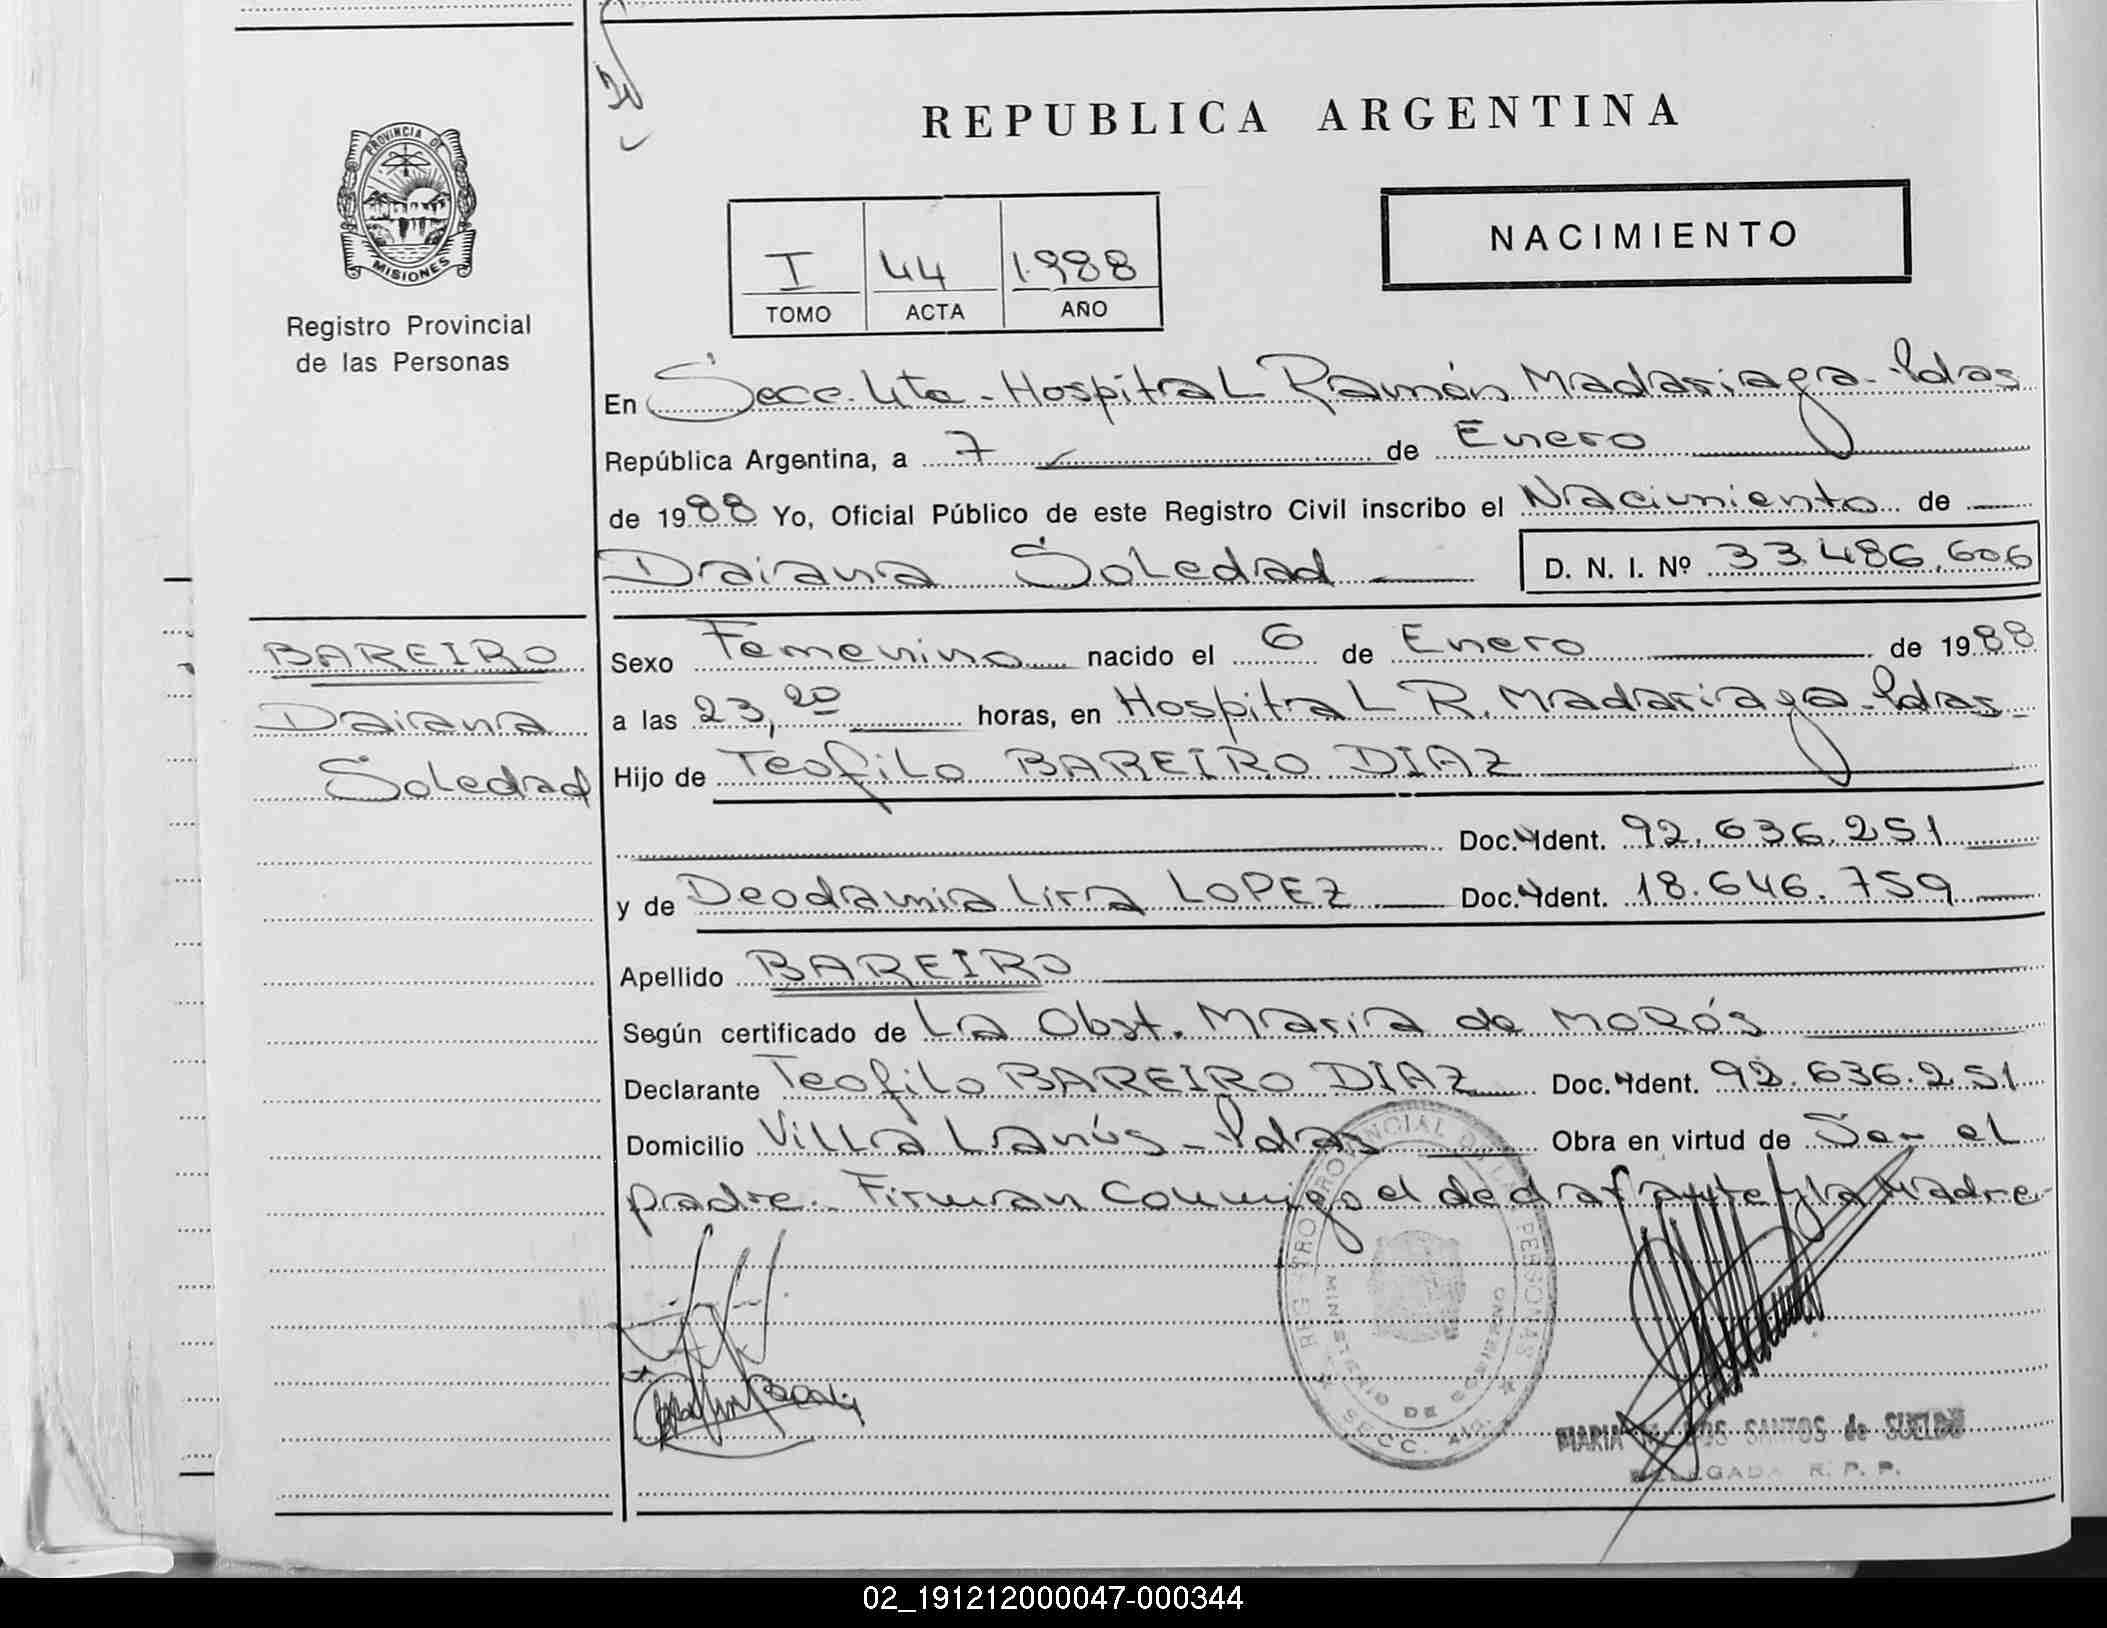 REPUBLICA ARGENTINA
PROVINCIA DE
MISIONES
Registro Provincial
de las Personas
I 44 1988
TOMO ACTA AÑO
NACIMIENTO
En Secc. 4ta - Hospital Ramón Madariaga - Pdas
República Argentina, a 7 de Enero
de 1988 Yo, Oficial Público de este Registro Civil inscribo el Nacimiento de
Daiana Soledad D. N. I. Nº 33.486.606
BAREIRO
Daiana
Soledad
Sexo Femenino nacido el 6 de Enero de 1988
a las 23,20 horas, en Hospital R. Madariaga - Pdas -
Hijo de Teofilo BAREIRO DIAZ
Doc. Ident. 92.636.251
y de Deodamia Lira LOPEZ Doc. Ident. 18.646.759
Apellido BAREIRO
Según certificado de La Obst. Maria de MORÓS
Declarante Teofilo BAREIRO DIAZ Doc. Ident. 92.636.251
Domicilio Villa Lanús - Pdas Obra en virtud de Ser el
padre. Firman Conmigo el declarante y la Madre -
REGISTRO PROVINCIAL DE LAS PERSONAS
MINISTERIO DE GOBIERNO
SECC. 4ta.
MARIA DOS SANTOS de SUELDO
DELEGADA R. P. P.
02_191212000047-000344